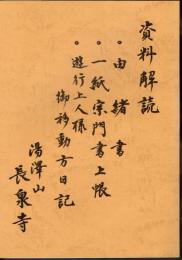 資料解読
・由緒書
・一紙宗門書上帳
・遊行上人様
御移動方日記
湯澤山
長泉寺